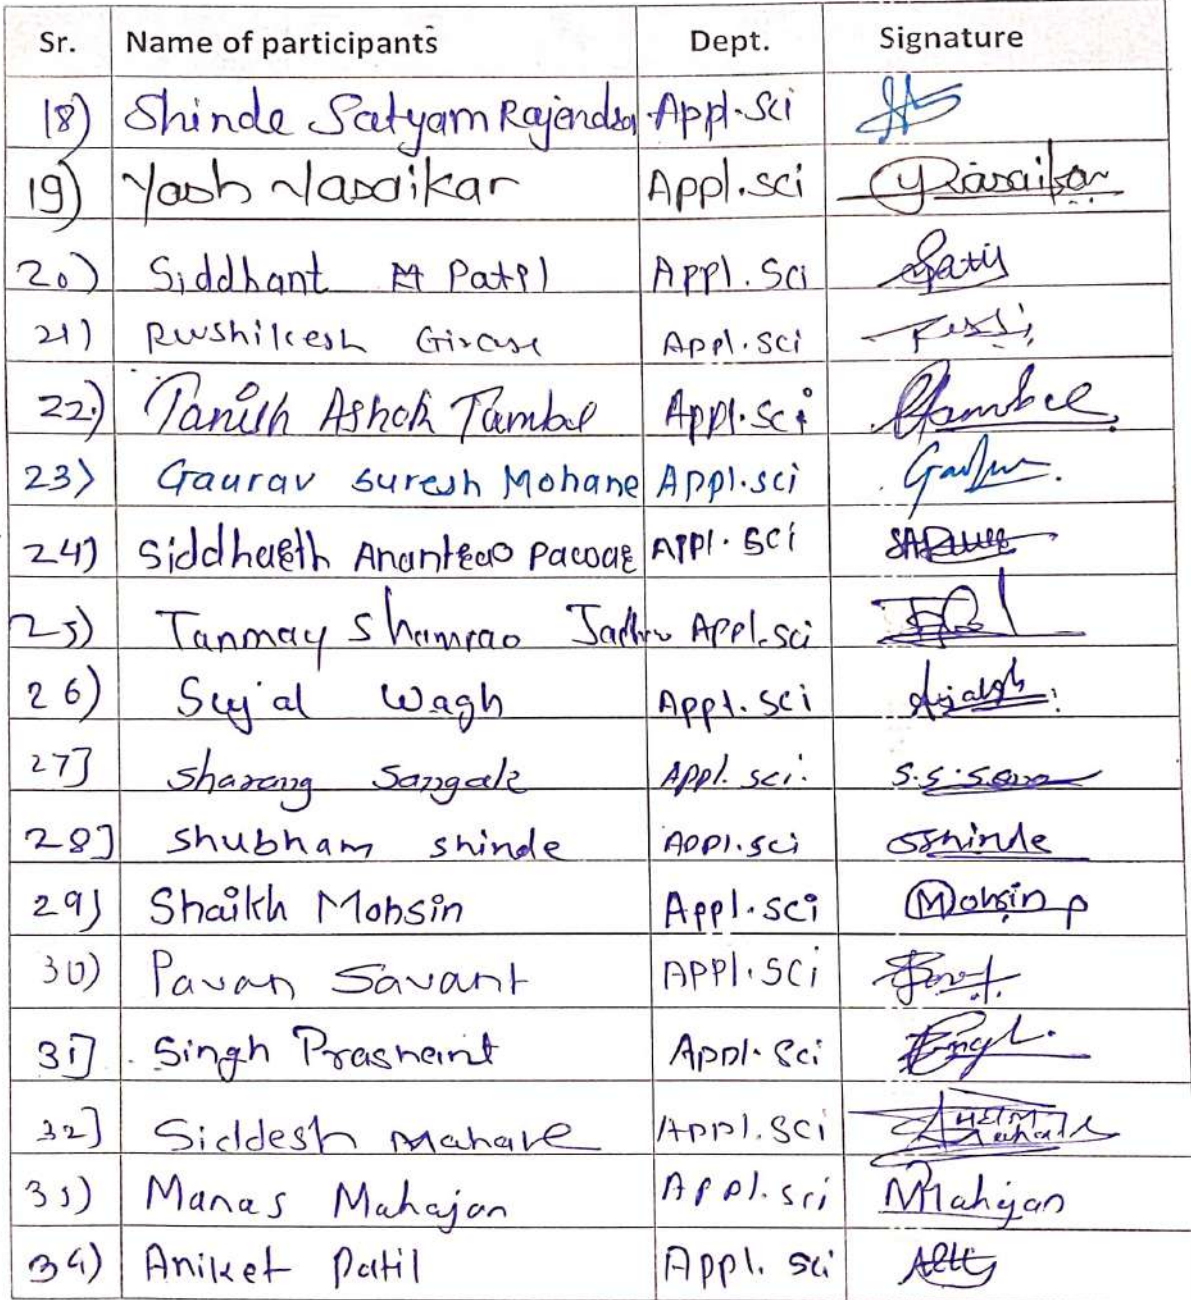 Sr. Name of participants Dept. Signature
18) Shinde Satyam Rajendra Appl.Sci
19) Yash Vasaikar Appl.sci YVasaikar
20) Siddhant M Patil Appl.Sci Patil
21) Rushikesh Girase Appl.sci
22) Tanish Ashok Tambe Appl.Sci Tambe
23) Gaurav Suresh Mohane Appl.sci
24) Siddharth Anantrao Pawar Appl.Sci
25) Tanmay Shamrao Jadhav Appl.sci
26) Sujal Wagh Appl.sci
27] Sharang Sangale Appl.sci.
28] Shubham shinde Appl.sci SShinde
29) Shaikh Mohsin Appl.sci Mohsin
30) Pavan Savant Appl.sci
31] Singh Prashant Appl.Sci
32] Siddesh Mahale Appl.Sci
33) Manas Mahajan Appl.sci MMahajan
34) Aniket Patil Appl.sci